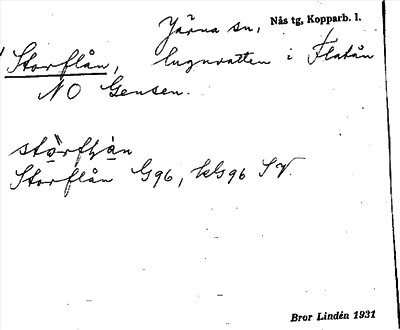 Järna sn, Nås tg, Kopparb. l.
Storflån, lugnvatten i Flatån
NO Gensen.
Storflån G96, kG96 SV.
Bror Lindén 1931